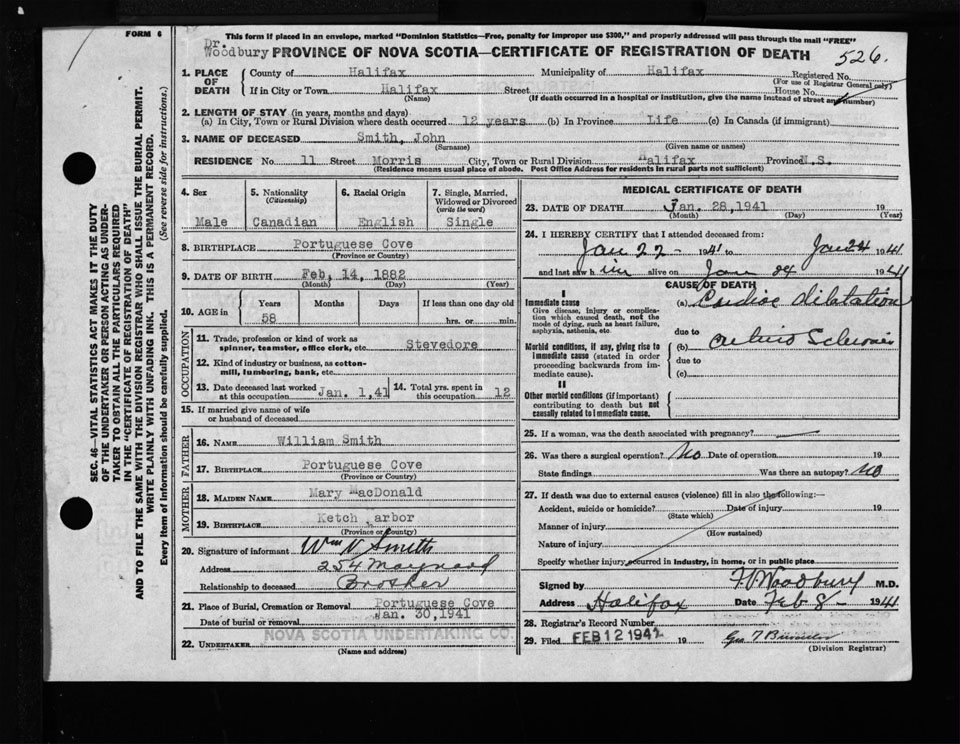 This form if placed in an envelope, marked "Dominion Statistics—Free, penalty for improper use $300," and properly addressed will pass through the mail "FREE"
FORM 6
Dr. Woodbury
PROVINCE OF NOVA SCOTIA—CERTIFICATE OF REGISTRATION OF DEATH
526.
1. PLACE OF DEATH
County of Halifax Municipality of Halifax Registered No.
(For use of Registrar General only)
If in City or Town Halifax Street House No.
(Name) (If death occurred in a hospital or institution, give the name instead of street and number)
2. LENGTH OF STAY (in years, months and days)
(a) In City, Town or Rural Division where death occurred 12 years (b) In Province Life (c) In Canada (if immigrant)
3. NAME OF DECEASED Smith, John
(Surname) (Given name or names)
RESIDENCE No. 11 Street Morris City, Town or Rural Division Halifax Province N.S.
(Residence means usual place of abode. Post Office Address for residents in rural parts not sufficient)
4. Sex Male
5. Nationality (Citizenship) Canadian
6. Racial Origin English
7. Single, Married, Widowed or Divorced (write the word) Single
8. BIRTHPLACE Portuguese Cove
(Province or Country)
9. DATE OF BIRTH Feb, 14, 1882
(Month) (Day) (Year)
10. AGE in Years Months Days If less than one day old
58 hrs. or min.
OCCUPATION
11. Trade, profession or kind of work as spinner, teamster, office clerk, etc. Stevedore
12. Kind of industry or business, as cotton-mill, lumbering, bank, etc.
13. Date deceased last worked at this occupation Jan. 1,41
14. Total yrs. spent in this occupation 12
15. If married give name of wife or husband of deceased
FATHER
16. NAME William Smith
17. BIRTHPLACE Portuguese Cove
(Province or Country)
MOTHER
18. MAIDEN NAME Mary MacDonald
19. BIRTHPLACE Ketch arbor
(Province or Country)
20. Signature of informant Wm N Smith
Address 254 Maynard
Relationship to deceased Brother
21. Place of Burial, Cremation or Removal Portuguese Cove
Date of burial or removal Jan. 30,1941
NOVA SCOTIA UNDERTAKING CO.
22. UNDERTAKER
(Name and address)
MEDICAL CERTIFICATE OF DEATH
23. DATE OF DEATH Jan. 28,1941 19
(Month) (Day) (Year)
24. I HEREBY CERTIFY that I attended deceased from:
Jan 22 - 1941 to Jan 24 1941
and last saw him alive on Jan 24 1941
CAUSE OF DEATH
I
Immediate cause
Give disease, injury or complication which caused death, not the mode of dying, such as heart failure, asphyxia, asthenia, etc.
(a) Cardiac dilatation
due to
Morbid conditions, if any, giving rise to immediate cause (stated in order proceeding backwards from immediate cause).
(b)
due to
(c)
II
Other morbid conditions (if important) contributing to death but not causally related to immediate cause.
25. If a woman, was the death associated with pregnancy?
26. Was there a surgical operation? No Date of operation 19
State findings Was there an autopsy? No
27. If death was due to external causes (violence) fill in also the following:—
Accident, suicide or homicide? Date of injury 19
(State which)
Manner of injury
(How sustained)
Nature of injury
Specify whether injury occurred in industry, in home, or in public place.
Signed by Woodbury M.D.
Address Halifax Date Feb 8- 1941
28. Registrar's Record Number
29. Filed FEB 12 1941 19
(Division Registrar)
SEC. 46—VITAL STATISTICS ACT MAKES IT THE DUTY
OF THE UNDERTAKER OR PERSON ACTING AS UNDER-
TAKER TO OBTAIN ALL THE PARTICULARS REQUIRED
IN THE "CERTIFICATE OF REGISTRATION OF DEATH"
AND TO FILE THE SAME WITH THE DIVISION REGISTRAR WHO SHALL ISSUE THE BURIAL PERMIT.
WRITE PLAINLY WITH UNFADING INK. THIS IS A PERMANENT RECORD.
Every item of information should be carefully supplied. (See reverse side for instructions.)